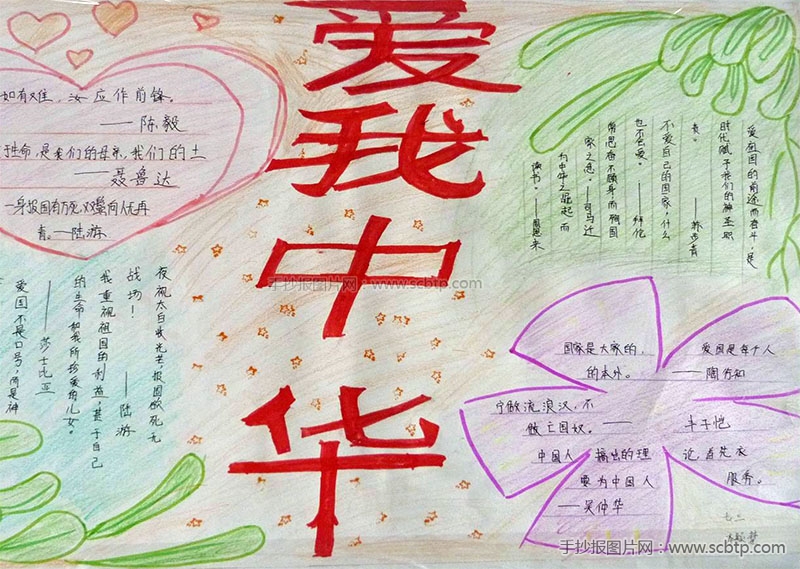 爱我中华
如有难，汝应作前锋。
——陈毅
生命,是我们的母亲,我们的土
——聂鲁达
一身报国有万死,双鬓向人无再
青。—陆游
爱祖国的前途而奋斗，是
时代赋予我们的神圣职
责。——苏步青
不爱自己的国家，什么
也不会爱。——拜伦
常思奋不顾身，而殉国
家之急。——司马迁
为中华之崛起而
读书。——周恩来
夜视太白收光芒，报国欲死无
战场！——陆游
我重视祖国的利益，甚于自己
的生命和我所珍爱的儿女。
——莎士比亚
爱国不是口号，而是神
国家是大家的，爱国是每个人
的本分。——陶行知
宁做流浪汉，不
做亡国奴。——丰子恺
中国人搞出的理论，首先应
要为中国人服务。
——吴仲华
七二
手抄报图片网：www.scbtp.com
手抄报图片网：www.scbtp.com